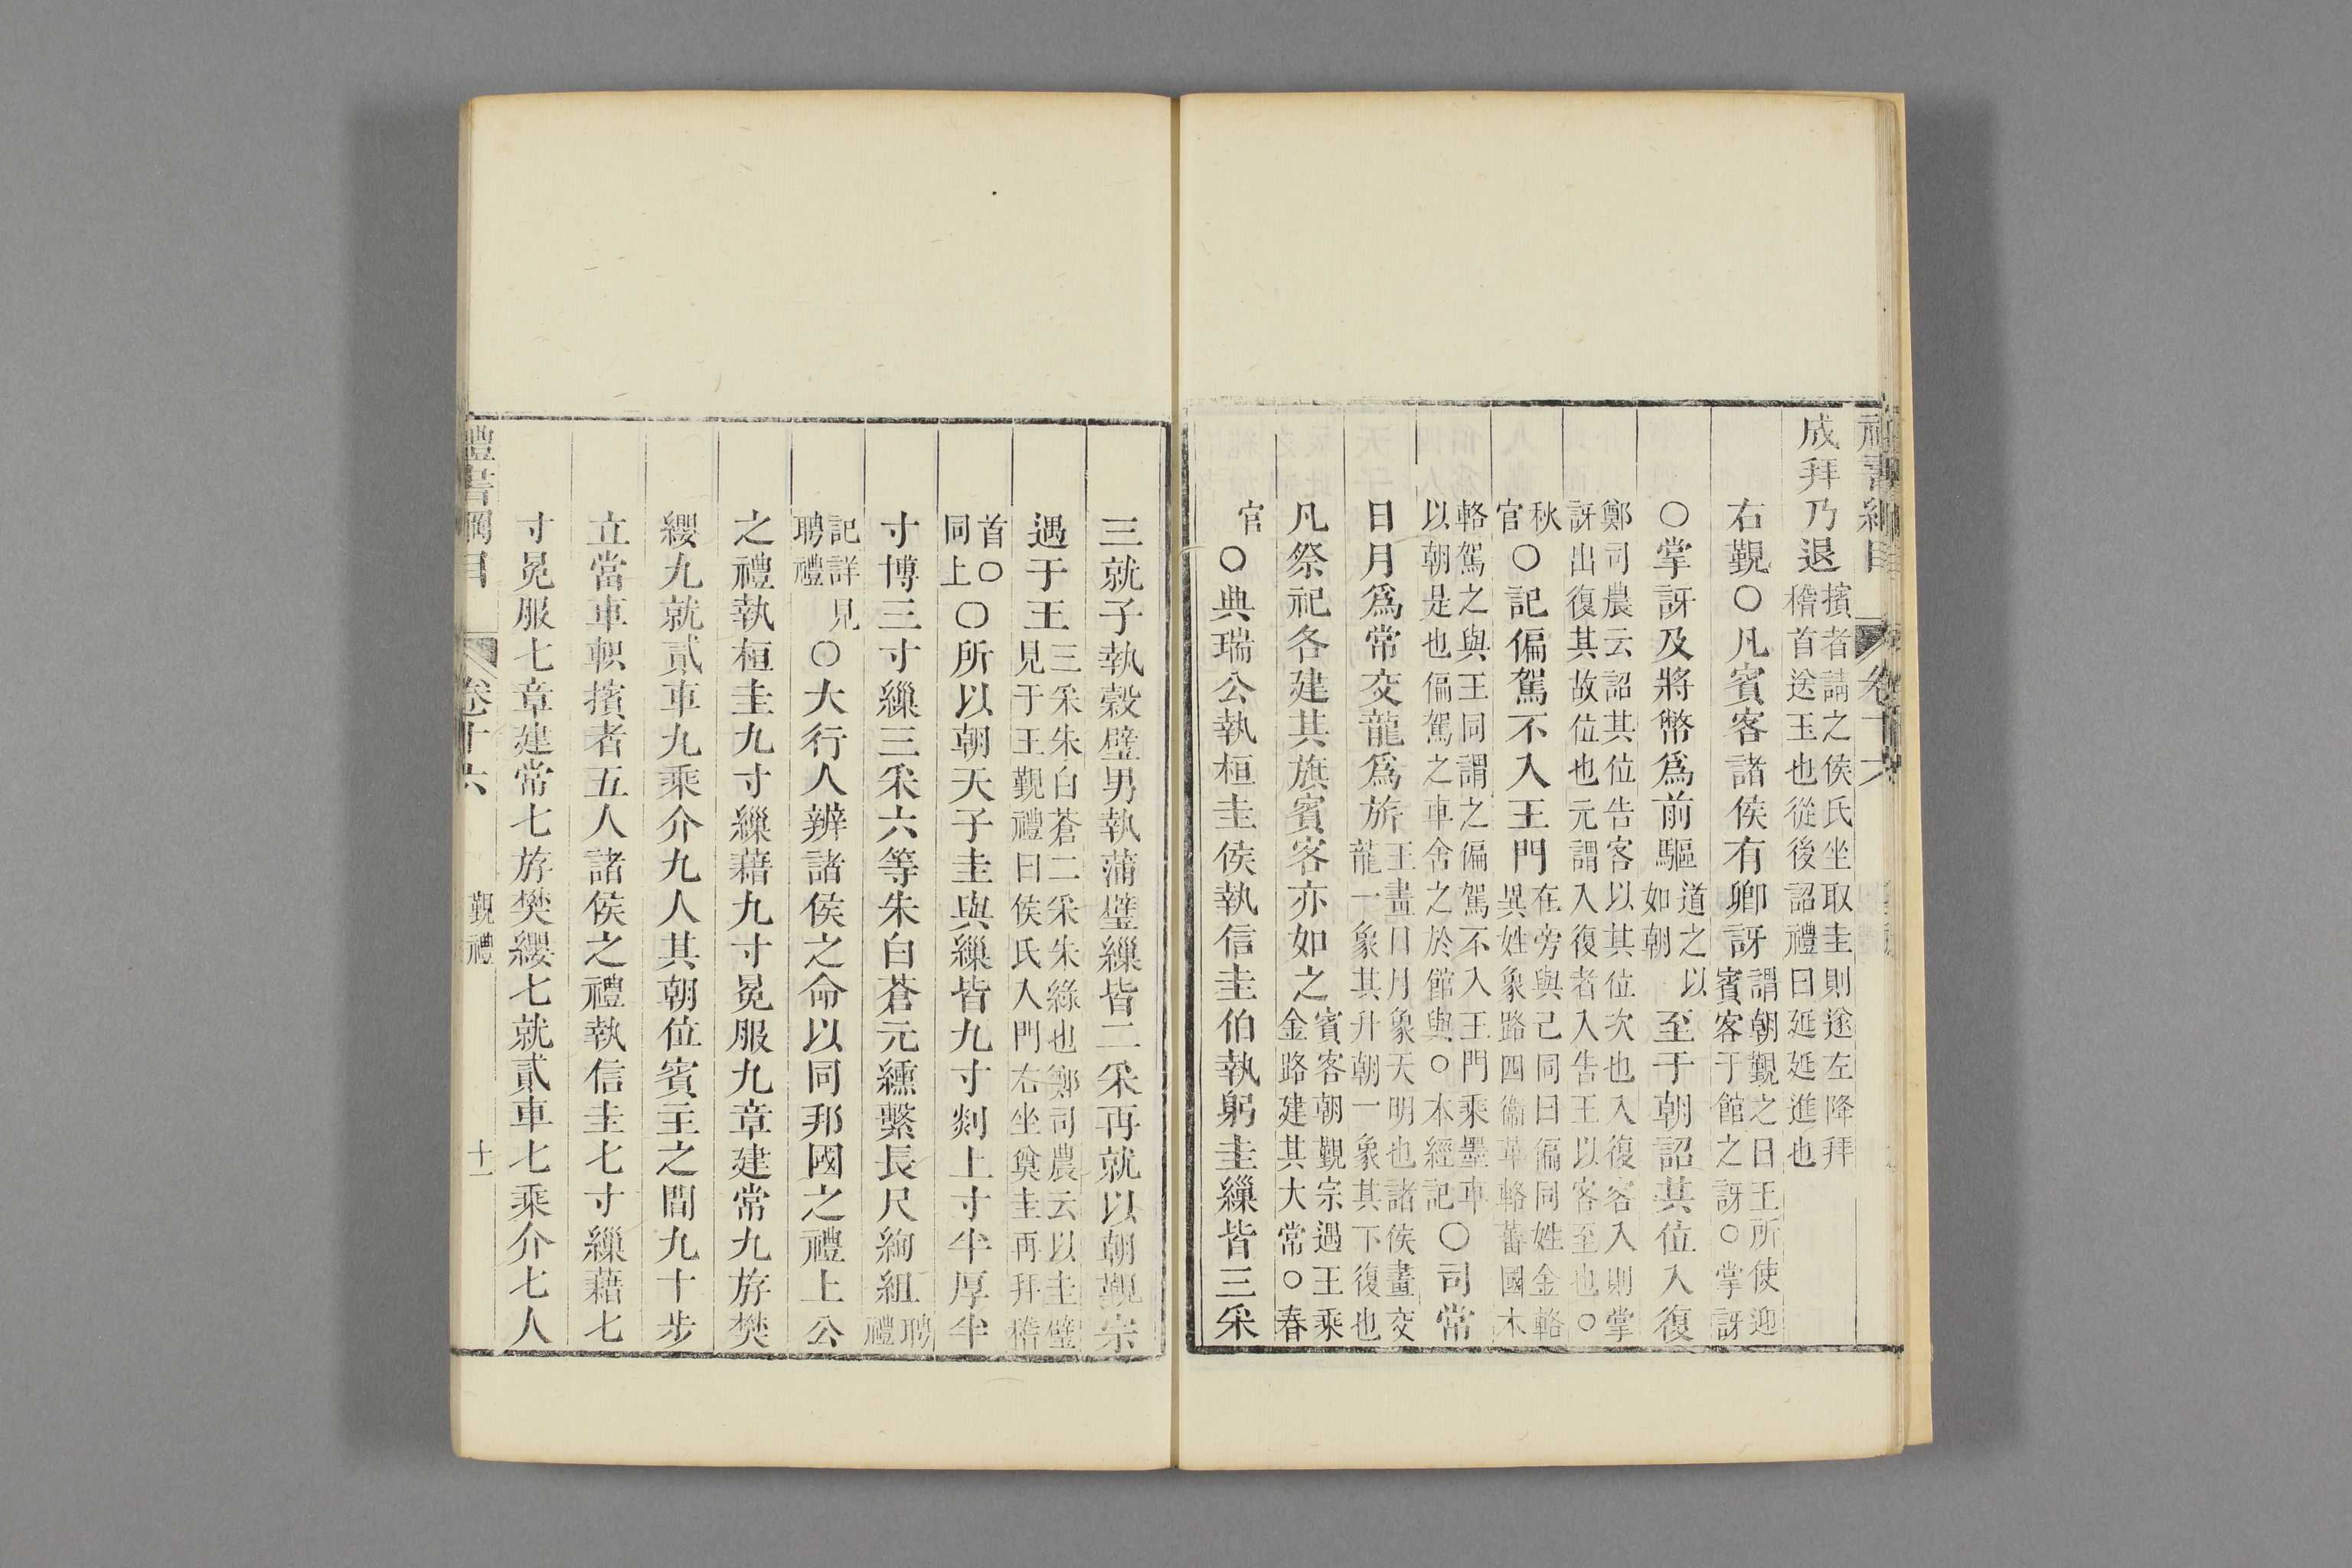 禮書綱目 卷十六
成拜乃退擯者請之侯氏坐取圭則遂左降拜稽首送玉也從後詔禮曰延延進也
右覲○凡賓客諸侯有卿訝謂朝覲之日王所使迎賓客于館之訝○掌訝
○掌訝及將幣爲前驅道之以如朝至于朝詔其位入復
鄭司農云詔其位告客以其位次也入復客入則掌訝出復其故位也元謂入復者入告王以客至也○
秋官○記偏駕不入王門在旁與己同曰偏同姓金輅異姓象路四衞革輅蕃國木
輅駕之與王同謂之偏駕不入王門乘墨車以朝是也偏駕之車舍之於館與○本經記○司常
日月爲常交龍爲旂王畫日月象天明也諸侯畫交龍一象其升朝一象其下復也
凡祭祀各建其旗賓客亦如之賓客朝覲宗遇王乘金路建其大常○春
官○典瑞公執桓圭侯執信圭伯執躬圭繅皆三采
三就子執穀璧男執蒲璧繅皆二采再就以朝覲宗
遇于王三采朱白蒼二采朱綠也鄭司農云以圭璧見于王覲禮曰侯氏入門右坐奠圭再拜稽
首○同上○所以朝天子圭與繅皆九寸剡上寸半厚半
寸博三寸繅三采六等朱白蒼元纁繫長尺絢組聘禮
記詳見聘禮○大行人辨諸侯之命以同邦國之禮上公
之禮執桓圭九寸繅藉九寸冕服九章建常九斿樊
纓九就貳車九乘介九人其朝位賓主之間九十步
立當車軹擯者五人諸侯之禮執信圭七寸繅藉七
寸冕服七章建常七斿樊纓七就貳車七乘介七人
禮書綱目 卷十六 覲禮 十一